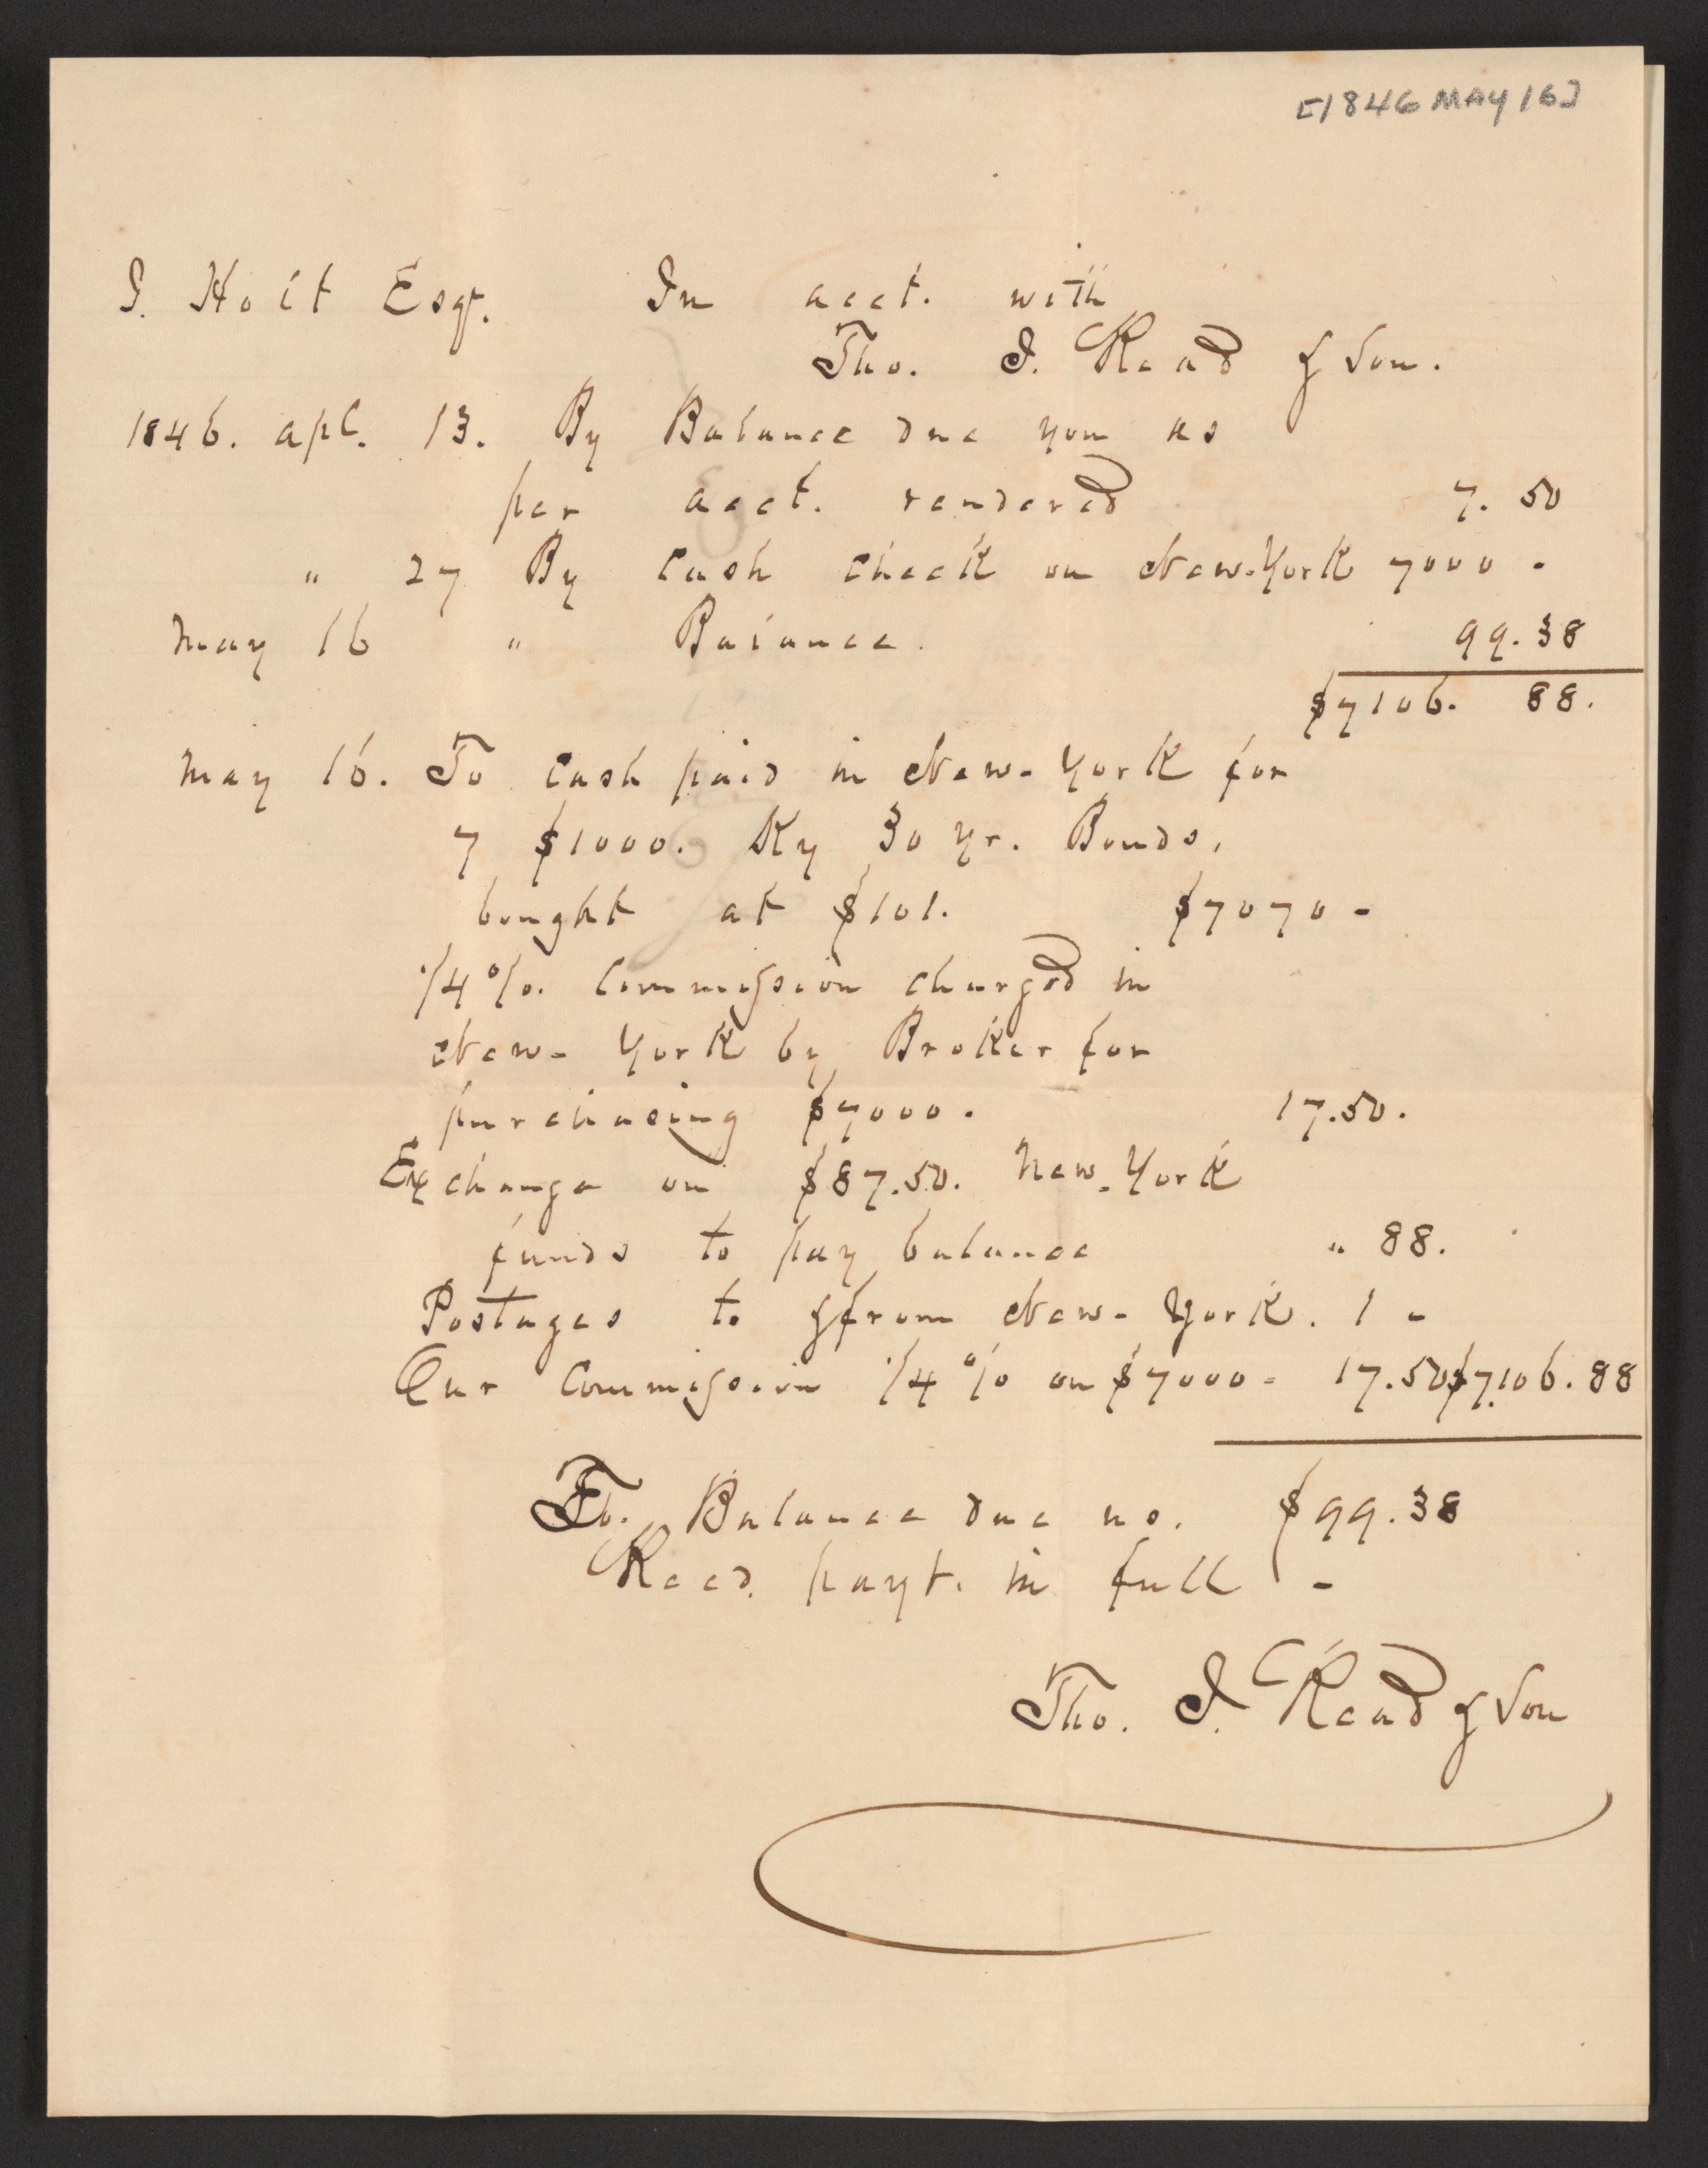 [1846 MAY 16]
J. Holt Esqr. In acct. with
Tho. J. Read & Son.
1846. apl. 13. By Balance due you as
per acct. rendered 7.50
" 27 By Cash check on New-York 7000 -
May 16 " Balance. 99.38
$7106. 88.
May 16. To Cash paid in New-York for
7 $1000. Ky 30 yr. Bonds,
bought at $101. $7070 -
1/4 %. Commission charged in
New-York by Broker for
purchasing $7000. 17.50.
Exchange on $87.50. New-York
funds to pay balance " 88.
Postages to & from New-York. 1 -
Our Commission 1/4 % on $7000 - 17.50 $7,106.88
To. Balance due us. $99.38
Recd. payt. in full -
Tho. J. Read & Son